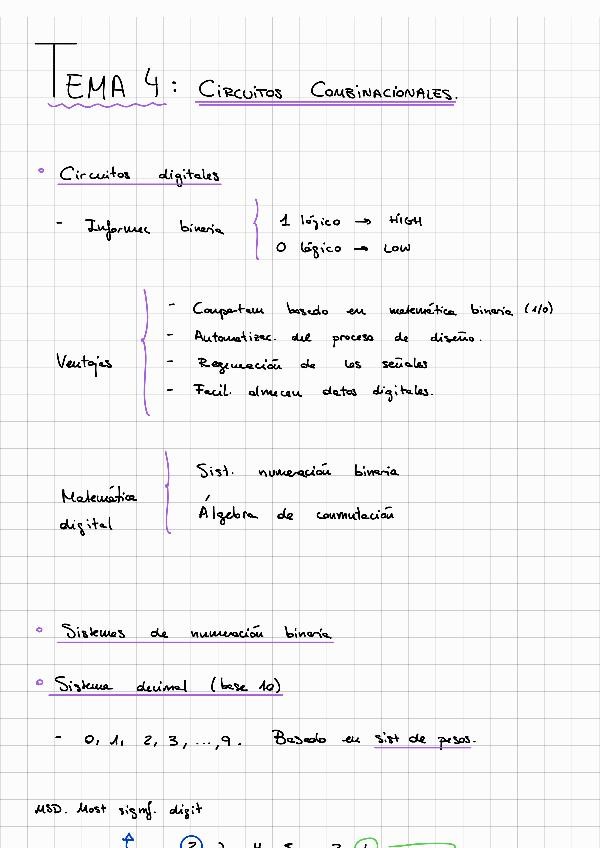 TEMA 4: CIRCUITOS COMBINACIONALES.
• Circuitos digitales
- Informac binaria
1 lógico → HIGH
0 lógico → LOW
Ventajas
- Comportam basado en matemática binaria (1/0)
- Automatizac. del proceso de diseño.
- Regeneración de las señales
- Facil. almacen datos digitales.
Matemática digital
Sist. numeración binaria
Álgebra de conmutación
• Sistemas de numeración binaria
• Sistema decimal (base 10)
- 0, 1, 2, 3, ..., 9. Basado en sist de pesos.
MSD. Most signf. digit